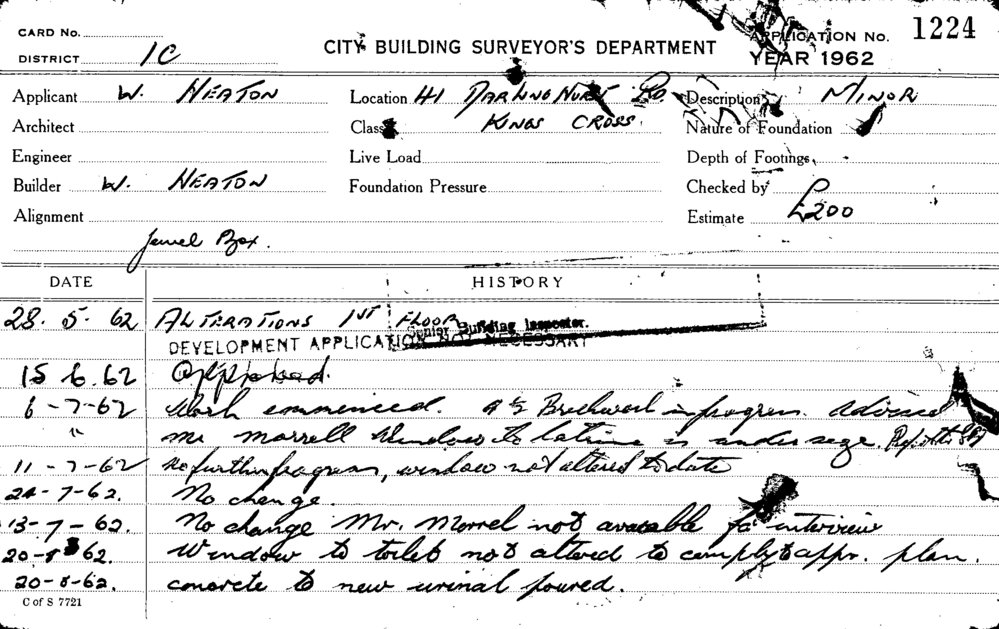 CARD No.
APPLICATION No. 1224
DISTRICT 1C
CITY BUILDING SURVEYOR'S DEPARTMENT
YEAR 1962
Applicant W. HEATON
Location 41 DARLINGHURST RD.
Description MINOR
Architect
Class KINGS CROSS.
Nature of Foundation
Engineer
Live Load
Depth of Footings
Builder W. HEATON
Foundation Pressure
Checked by
Alignment
Estimate £200
Jewel Box.
DATE HISTORY
28. 5. 62 ALTERATIONS 1ST FLOOR
Senior Building Inspector.
DEVELOPMENT APPLICATION NOT NECESSARY
15 6. 62 Approved.
6-7-62 Work commenced. Brickwork in progress. Advised
" Mr Morrell window to latrine is under size.
11-7-62 No further progress, window not altered to date
24-7-62. No change.
13-7-62. No change Mr. Morrel not available for interview
20-8 62. Window to toilet not altered to comply to appr. plan.
20-8-62. concrete to new urinal poured.
C of S 7721